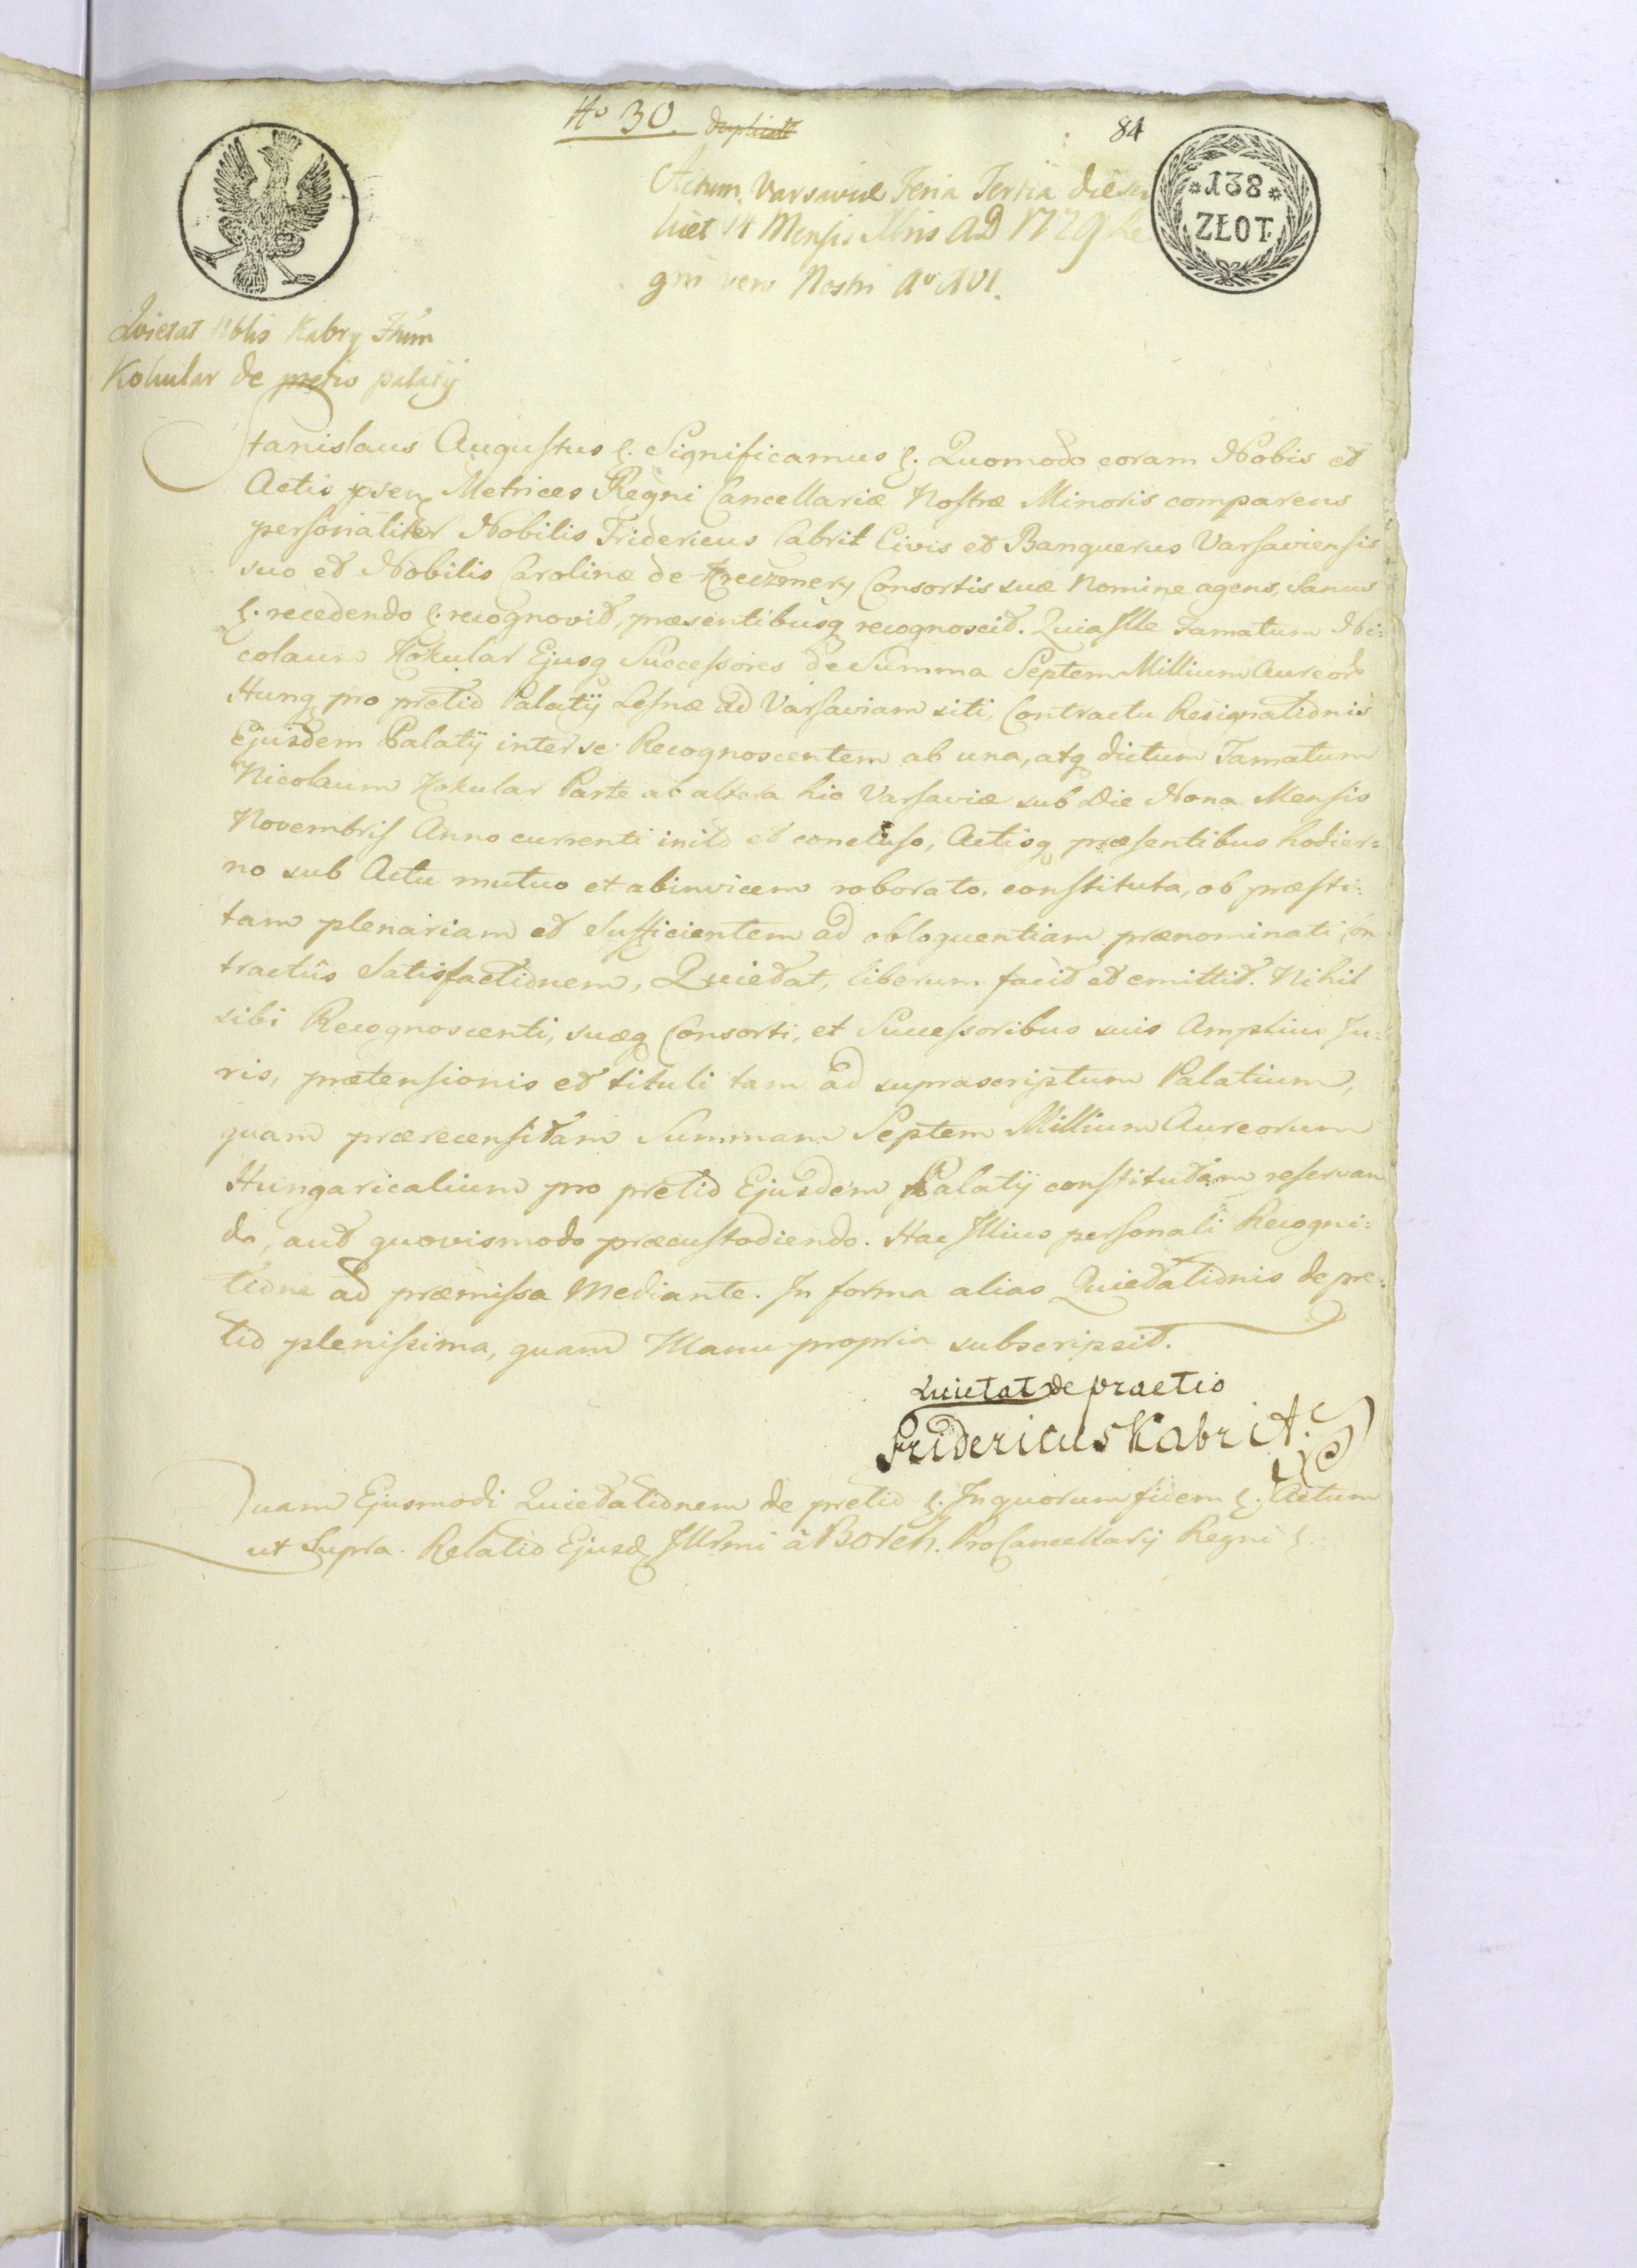 No 30. duplicat
84
138
ZŁOT.
Actum Varsaviæ Feria Tertia die
14 Mensis Xbris AD 1779 Re
gni vero Nostri Ao XVI.
Quietat Nblis Kabry Fhum
Kokular de pretio palatij
Stanislaus Augustus &. Significamus &. Quomodo coram Nobis et
Actis psen Metrices Regni Cancellariæ Nostræ Minoris comparens
personaliter Nobilis Fridericus Cabrit Civis et Banquerus Varsaviensis
suo et Nobilis Carolinæ de Consortis suæ Nomine agens, Sanus
&. recedendo &. recognovit, præsentibusq recognoscit. Quia Ille Famatum Ni:
colaum Kokular Ejusq Successores de Summa Septem Millium Aureor
Hung pro pretio Palatij Lesnæ ad Varsaviam siti, Contractu Resignationis
Ejusdem Palatij inter se Recognoscentem ab una, atq dictum Famatum
Nicolaum Kokular Parte ab altera hic Varsaviæ sub Die Nona Mensis
Novembris Anno currenti inito et concluso, Actisq præsentibus hodier=
no sub Actu mutuo et abinvicem roborato, constituta, ob præsti:
tam plenariam et Sufficientem ad obloquentiam prænominati Con
tractûs Satisfactionem, Quietat, liberum facit et emittit. Nihil
sibi Recognoscenti, suæq Consorti, et Successoribus suis Amplius Ju:
ris, prætensionis et tituli tam ad suprascriptum Palatium,
quam præreccensitam Summam Septem Millium Aureorum
Hungaricalium pro pretio Ejusdem Palatij constitutam reservan
do, aut quovismodo præcustodiendo. Hac Illius personali Recogni:
tione ad præmissa Mediante. In forma alias Quietationis de pre:
tio plenissima, quam Manu propria subscripsit.
Quietat de praetio
Fridericus Kabrit.
Quam Ejusmodi Quietationem de pretio &. In quorum fidem &. Actum
ut Supra. Relatio Ejusd Illrmi à Borch. ProCancellarij Regni &.